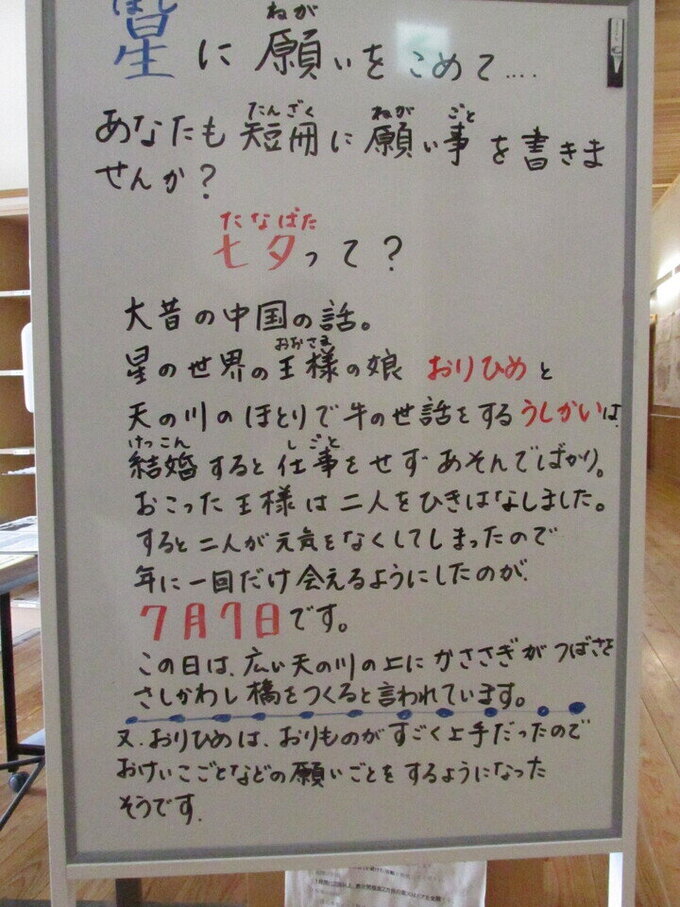 星に願いをこめて....
あなたも短冊に願い事を書きま
せんか?
七夕って?
大昔の中国の話。
星の世界の王様の娘 おりひめと
天の川のほとりで牛の世話をするうしかいは、
結婚すると仕事をせずあそんでばかり。
おこった王様は二人をひきはなしました。
すると二人が元気をなくしてしまったので
年に一回だけ会えるようにしたのが、
7月7日です。
この日は、広い天の川の上にかささぎがつばさを
さしかわし橋をつくると言われています。
又、おりひめは、おりものがすごく上手だったので
おけいこごとなどの願いごとをするようになった
そうです。